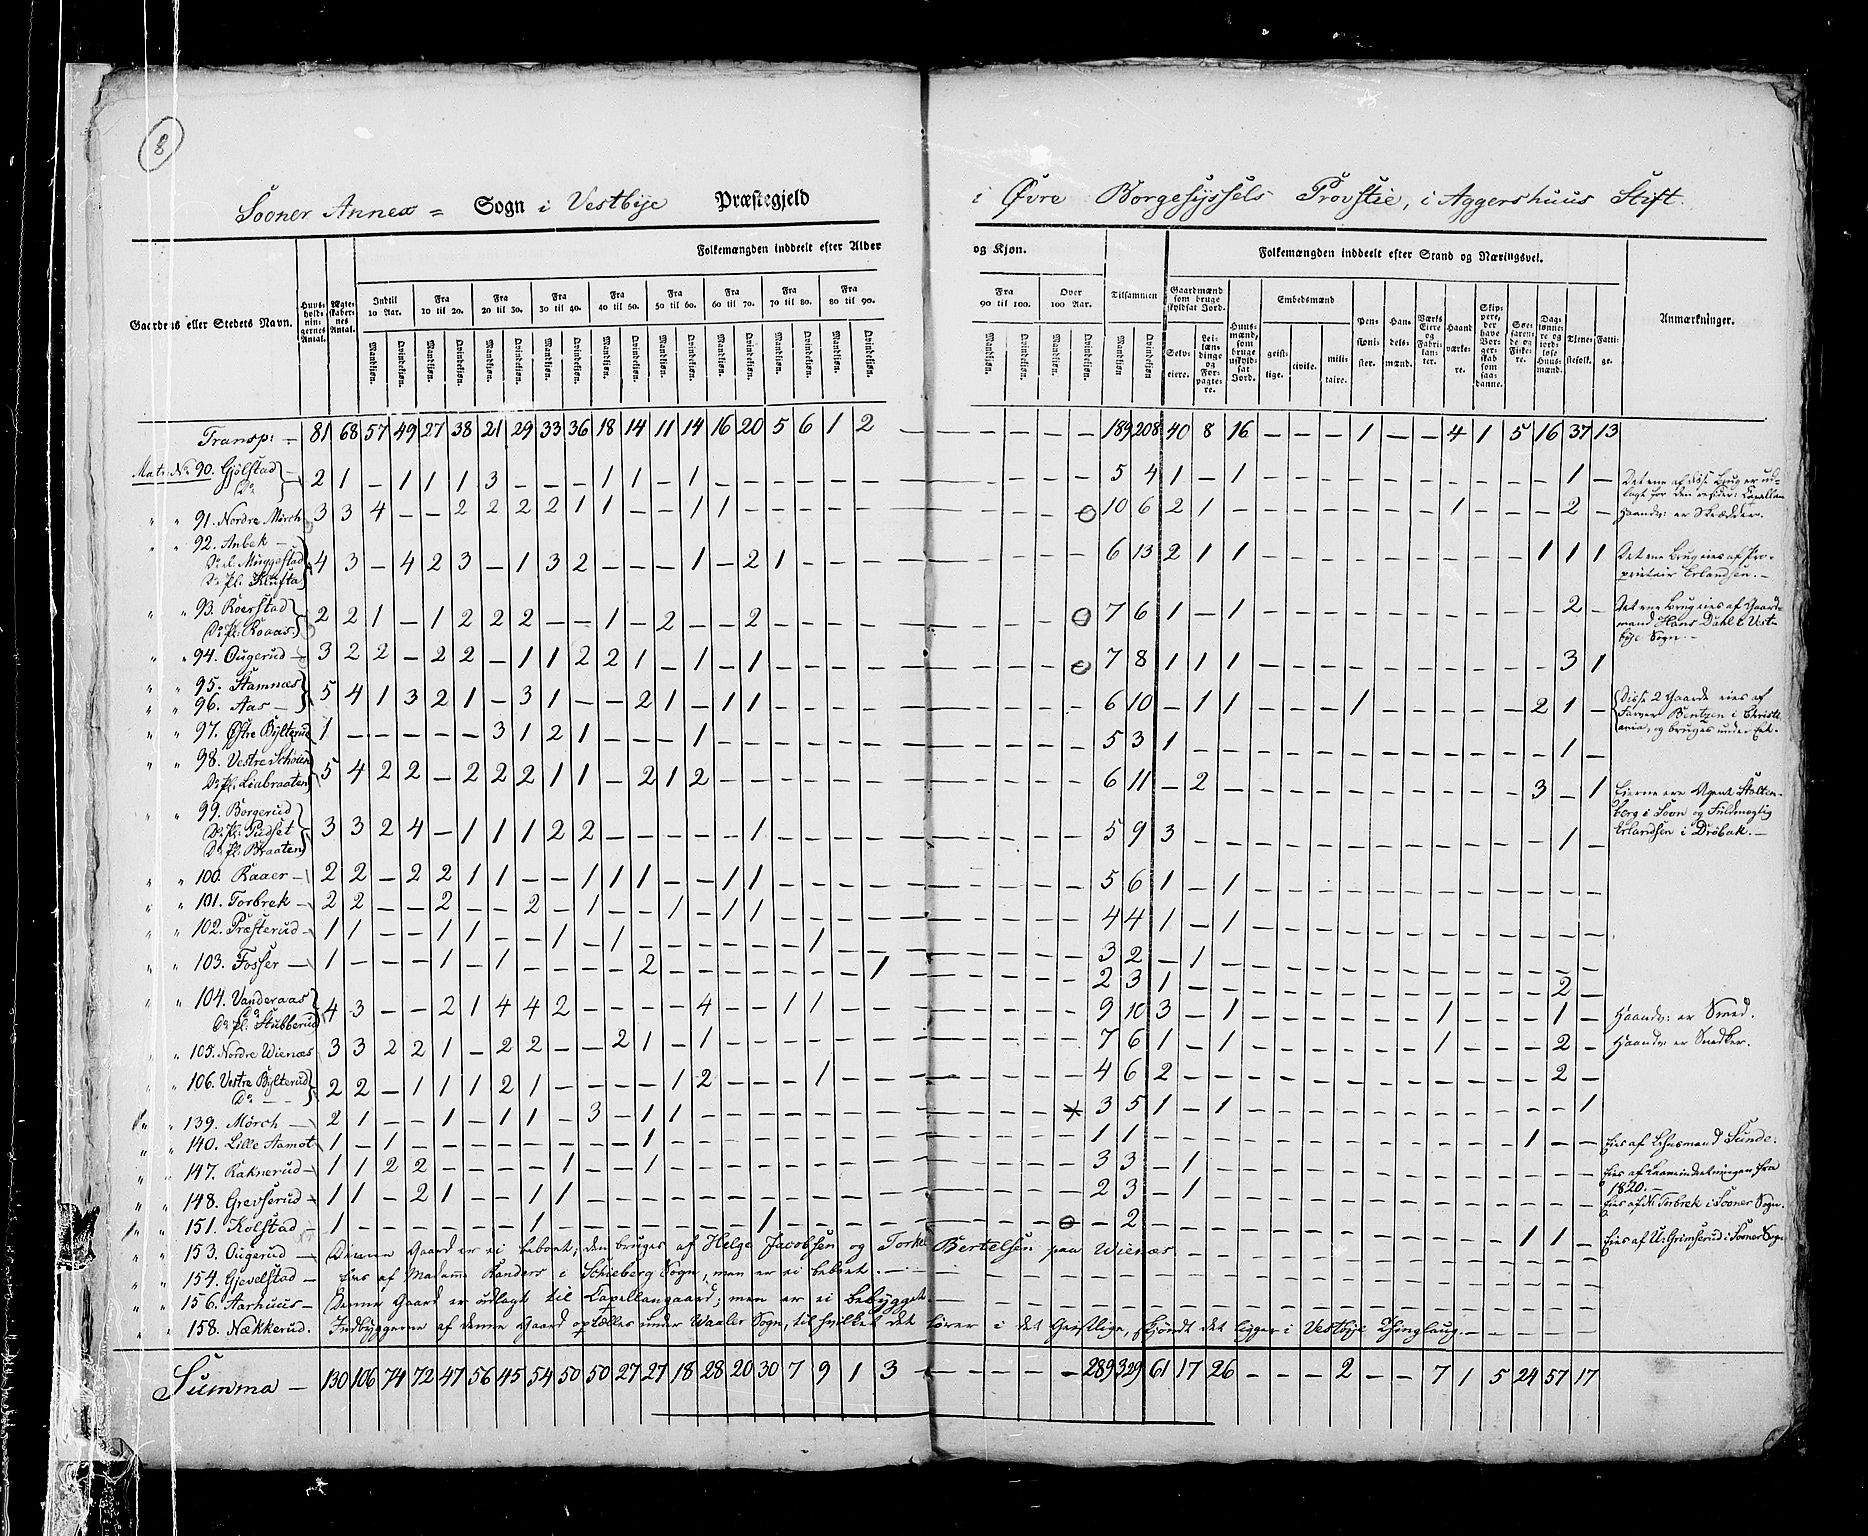 8
Sooner Annex = Sogn i Vestbye Præstegjeld i Øvre Borgesyssels Provstie, i Aggershuus Stift.
Folkemængden inddeelt efter Alder og Kjøn. Folkemængden inddeelt efter Stand og Næringsvei.
Gaardens eller Stedets Navn. Huusholdningernes Antal. Ægteskabernes Antal. Indtil 10 Aar. Fra 10 til 20. Fra 20 til 30. Fra 30 til 40. Fra 40 til 50. Fra 50 til 60. Fra 60 til 70. Fra 70 til 80. Fra 80 til 90. Fra 90 til 100. Over 100 Aar. Tilsammen
Mandkjøn. Qvindekjøn.
Gaardmænd som bruge skyldsat Jord. Selveiere. Leilændinge og Forpagtere. Huusmænd, som bruge uskyldsat Jord. Embedsmænd geistlige. civile. militaire. Pensionister. Handelsmænd. Værks Eiere og Fabrikanter. Haandværkere. Skippere, der have Borgerskab som saadanne. Søefarende og Fiskere. Daglønnere og jordløse Huusmænd. Tjenestefolk. Fattige. Anmærkninger.
Transp: – 81 68 57 49 27 38 21 29 33 36 18 14 11 14 16 20 5 6 1 2 – – – – 189 208 40 8 16 – – – 1 – – 4 1 5 16 37 13
Matr. No 90. Gjølstad Do 2 1 – 1 1 1 3 – – – 1 1 – 1 – – – – – – 5 4 1 – 1 – 1 – Det ene af disse Brug er ud-
lagt for den resider: Capellan
" " 91. Nordre Mörch 3 3 4 – – 2 2 2 2 1 1 – – 1 1 – – – – – 10 6 2 1 – 1 – 2 – Haandv: er Skrædder.
" " 92. Anbek –
Do el. Muggestad 4 3 – 4 2 3 – 1 3 2 – – – 1 – 2 1 – – – 6 13 2 1 1 – 1 1 1 Det ene Brug eies af Pro-
Do pl. Klufta prietair Erlandsen. –
" " 93. Roerstad
Do pl. Roaas 2 2 1 – 1 2 2 2 – – 1 – 2 – – 2 – – – – 7 6 1 – 1 – 2 – Det ene Brug eies af Gaard-
mand Hans Dahl i Vest-
bye Sogn. –
" " 94. Ougerud – 3 2 2 – 2 2 – 1 1 2 2 1 – 1 – 1 – – – – 7 8 1 1 1 – 3 1
" " 95. Stamnæs
" " 96. Aas – 5 4 1 3 2 1 – 3 1 – – 2 1 – 1 1 – – – – 6 10 – 1 1 – 1 – 2 1 – Disse 2 Gaarde eies af
Farver Bentzen i Christi-
ania, og bruges under Eet.
" " 97. Østre Bylterud 1 – – – – – 3 1 2 1 – – – 1 – – – – – – 5 3 1 – 1 –
" " 98. Vestre Schouen
Do pl. Liabraaten 5 4 2 2 – 2 2 2 1 1 – 2 1 2 – – – – – – 6 11 – 2 – 3 – 1 Eierne ere Agent Stolten-
berg i Soon og Fuldmægtig
Erlandsen i Drøbak. –
" " 99. Borgerud
Do pl. Pudset 3 3 2 4 – 1 1 1 2 2 – – – – – 1 – – – – 5 9 3 – 1 –
Do pl. Braaten
" " 100. Raaer – 2 2 – 2 2 1 1 – – 1 1 1 – – 1 1 – – – – 5 6 1 – 1 –
" " 101. Torbrek – 2 2 – – 2 – – 2 – 1 – – 1 – 1 1 – – – – 4 4 1 – 1 –
" " 102. Præsterud – 1 1 – – 1 1 – – 1 – 1 – – – – – – 1 – – 3 2 – 1 –
" " 103. Fosser – 1 – – – 1 – 1 – – – – 2 – – – – – – – 1 2 3 1 – 2 –
" " 104. Vanderaas
Do
Do pl. Stubberud 4 3 – – 2 1 4 4 2 – – – – 4 – – 1 1 – – 9 10 3 – 1 – 1 – 1 – Haandv: er Smed.
" " 105. Nordre Wienæs 3 3 2 2 1 – 2 2 – – 2 1 – 1 – – – – – – 7 6 1 – 1 – 1 – 2 – Haandv: er Snedker.
" " 106. Vestre Bylterud
Do – – 2 2 – 1 1 1 2 1 – – – – 1 2 – – – 1 – – 4 6 2 – 2 –
" " 139. Mörch – 2 1 – – 1 – 1 1 – 3 – 1 1 – – – – – – – 3 5 1 – 1 – 1
" " 140. Lille Stamot 1 – 1 – – – – – – – – 1 – – – – – – – – 1 1 – 1 – – Eies af Lehnsmand Sunde.
" " 147. Raknerud – 1 1 2 2 – – – – 1 – – 1 – – – – – – – – 3 3 – 1 – Eies af Laaneindretningen fra
1820. –
" " 148. Grevserud – 1 1 – 2 1 – – 1 1 – – – – – – – – – – – 2 3 – 1 – Eies af N. Torbrek i Sooner Sogn.
" " 151. Kolstad – 1 – – – – – – 1 – – – – – – – 1 – – – – – 2 – 1 1 – Eies af U. Grimserud i Sooner Sogn
" " 153. Ougerud – Denne Gaard er ei beboet; den bruges af Helge Jacobsen og Torkel Bertelsen paa Wienæs.
" " 154. Gjevelstad – Eies af Madame Randers i Schieberg Sogn, men er ei beboet. –
" " 156. Aarhuus – Denne Gaard er udlagt til Capellangaard; men er ei bebygget. –
" " 158. Nækkerud. Indbyggerne af denne Gaard optælles under Waaler Sogn, til hvilket det hører i det Geistlige, skjøndt det ligger i Vestbye Thinglaug. –
Summa – 130 106 74 72 47 56 45 54 50 50 27 27 18 28 20 30 7 9 1 3 – – – – 289 329 61 17 26 – – – 2 – – 7 1 5 24 57 17